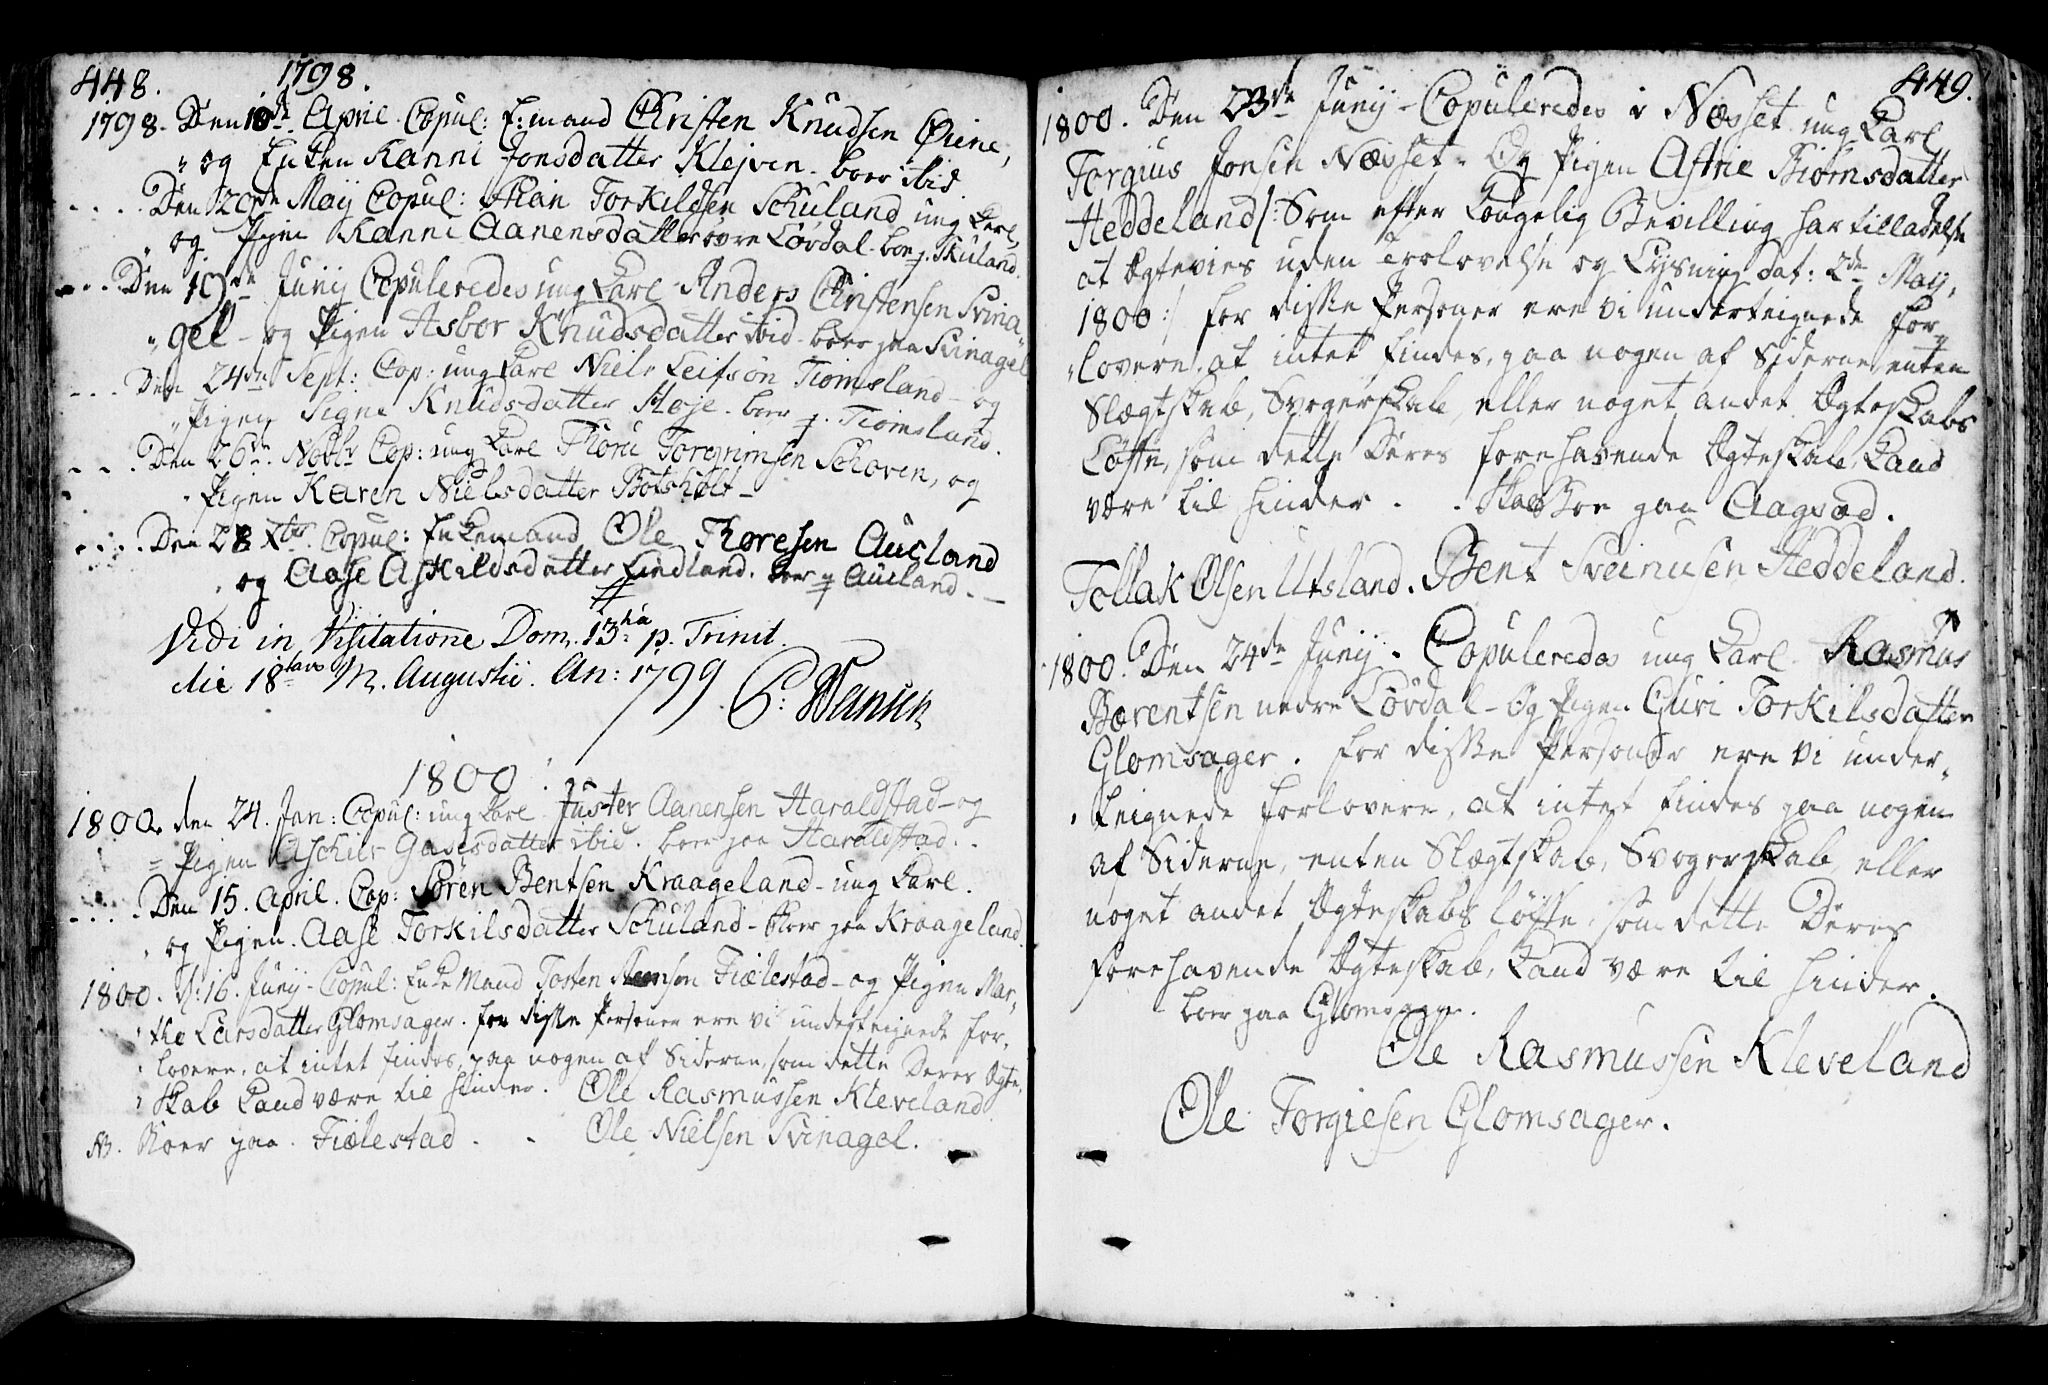 448. 1798.
1798. Den 10de April. Copul: E:mand Christen Knudsen Öiene,
" og Enken Kanni Jonsdatter Klejven. boer ibid
. . . . Den 20de Maij Copul: Torkildsen Schuland ung Karl,
" og Pigen Kanni Aanensdatter övre Lövdal. boe p. Skuland.
. . . Den 19de Junij Copuleredes ung Karl Anders Christensen Svina
" gel - og Pigen Asbor Knudsdatter ibid - boer paa Svinagel
. . . Den 24de Sept: Cop: ung Karl Niels Leifsön Tiomsland - og
" Pigen Signe Knudsdatter Höje. boer p. Tiomsland.
. . . Den 26de Novbr Cop: ung Karl Thoru Torgrimsen Schoven, og
" Pigen Karen Nielsdatter Botshölt -
. . . . Den 28 Xbr. Copul: Enkemand Ole Thoresen Aucland
" og Aase Askildsdatter Lindland. boer p Aucland. -
Vidi in Visitatione Dom. 13ha p. Trinit.
die 18tavo M. Augustii. An: 1799. P: Hansen
1800.
1800. den 24. Jan: Copul: ung Karl Juster Aanensen Haraldstad - og
= Pigen Aschier Gasesdatter ibid. boer paa Haraldstad. .
. . . . Den 15. April. Cop: Sören Bentsen Kraageland - ung Karl.
" og Pigen. Aase Torkilsdatter Schuland - Boer paa Kraageland.
1800. d: 16. Junij - Copul: Enke Mand Tosten Fiælestad - og Pigen Mar,
" the Larsdatter Glomsager. for disse Personer ere vi undertegnede for,
" lovere, at intet findes, paa nogen af Siderne, som dette Deres Ægte,
" skab kand være til hinder. Ole Rasmussen Kleveland
NB. Boer paa. Fiælestad. - Ole Nielsen Svinagel.
449.
1800. Den 23de Junij - Copuleredes i Næsset ung Karl
Torgius Jonsen Næsset - Og Pigen Astrie Biörnsdatter
Heddeland /: Som efter Kongelig Bevilling har tilladelse
at Ægtevies uden Trolovelse og Lysning dat: 2de Maij,
1800 :/ for disse Personer ere vi underteignede for,
" lovere, at intet findes, paa nogen af Siderne, enten
Slægtskab, Svogerskab, eller noget andet Ægteskabs
Löfte, som dette Deres forehavende Ægteskab, kand
være til hinder. . Skal Boe paa Aagsad.
Tellak Olsen Utsland. Bent Sveinusen Heddeland.
1800. Den 24de Junij. Copuleredes ung Karl. Rasmus
Bærentsen nedre Lövdal - Og Pigen Guri Torkilsdatter
Glomsager. for disse Personer ere vi under,
" teignede forlovere, at intet findes paa nogen
af Siderne, enten Slægtskab, Svogerskab, eller
noget andet Ægteskabs löfte, som dette Deres
forehavende Ægteskab, kand være til hinder.
boer paa Glomsager.
Ole Rasmussen Kleveland
Ole Torgiesen Glomsager.